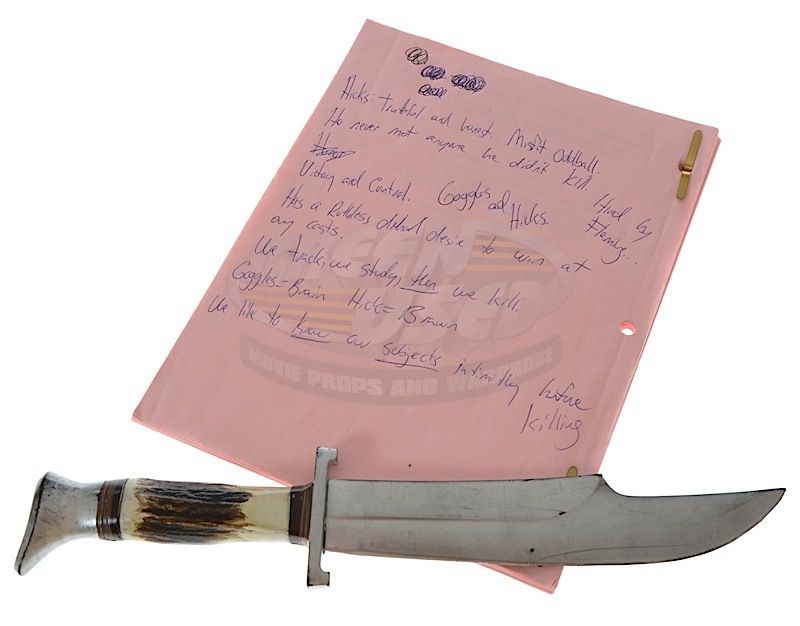 Hicks: truthful and honest. Misfit Oddball.
He never met anyone he didn't kill.
Honor
Victory and Control. Goggles and Hicks. Hired by Henry...
Has a Ruthless desire to win at
any costs.
We track, we study, then we kill.
Goggles = Brain Hicks = Brawn
We like to know our subjects intimitly before
killing
SCREEN
USED
MOVIE PROPS AND WARDROBE